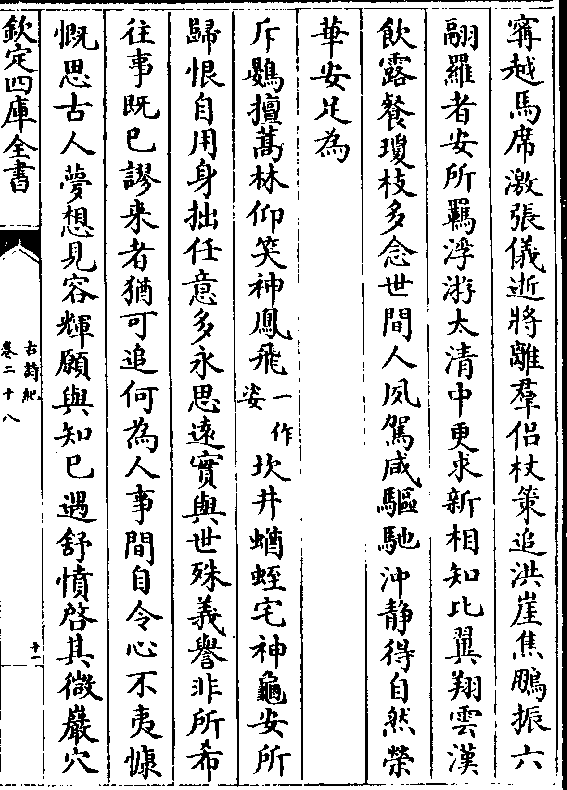 甯越馬席激張儀逝將離羣侶杖策追洪崖焦鵬振六
翮羅者安所羈浮游太清中更求新相知比翼翔雲漢
飲露餐瓊枝多念世間人夙駕咸驅馳沖静得自然榮
華安足為
斥鷃擅蒿林仰笑神鳳飛一作姿坎井蝤蛭宅神龜安所
歸恨自用身拙任意多永思遠實與世殊義譽非所希
往事既已謬来者猶可追何為人事間自令心不夷慷
慨思古人夢想見容輝願與知已遇舒憤啓其微巖穴
欽定四庫全書
古詩紀
卷二十八
十一